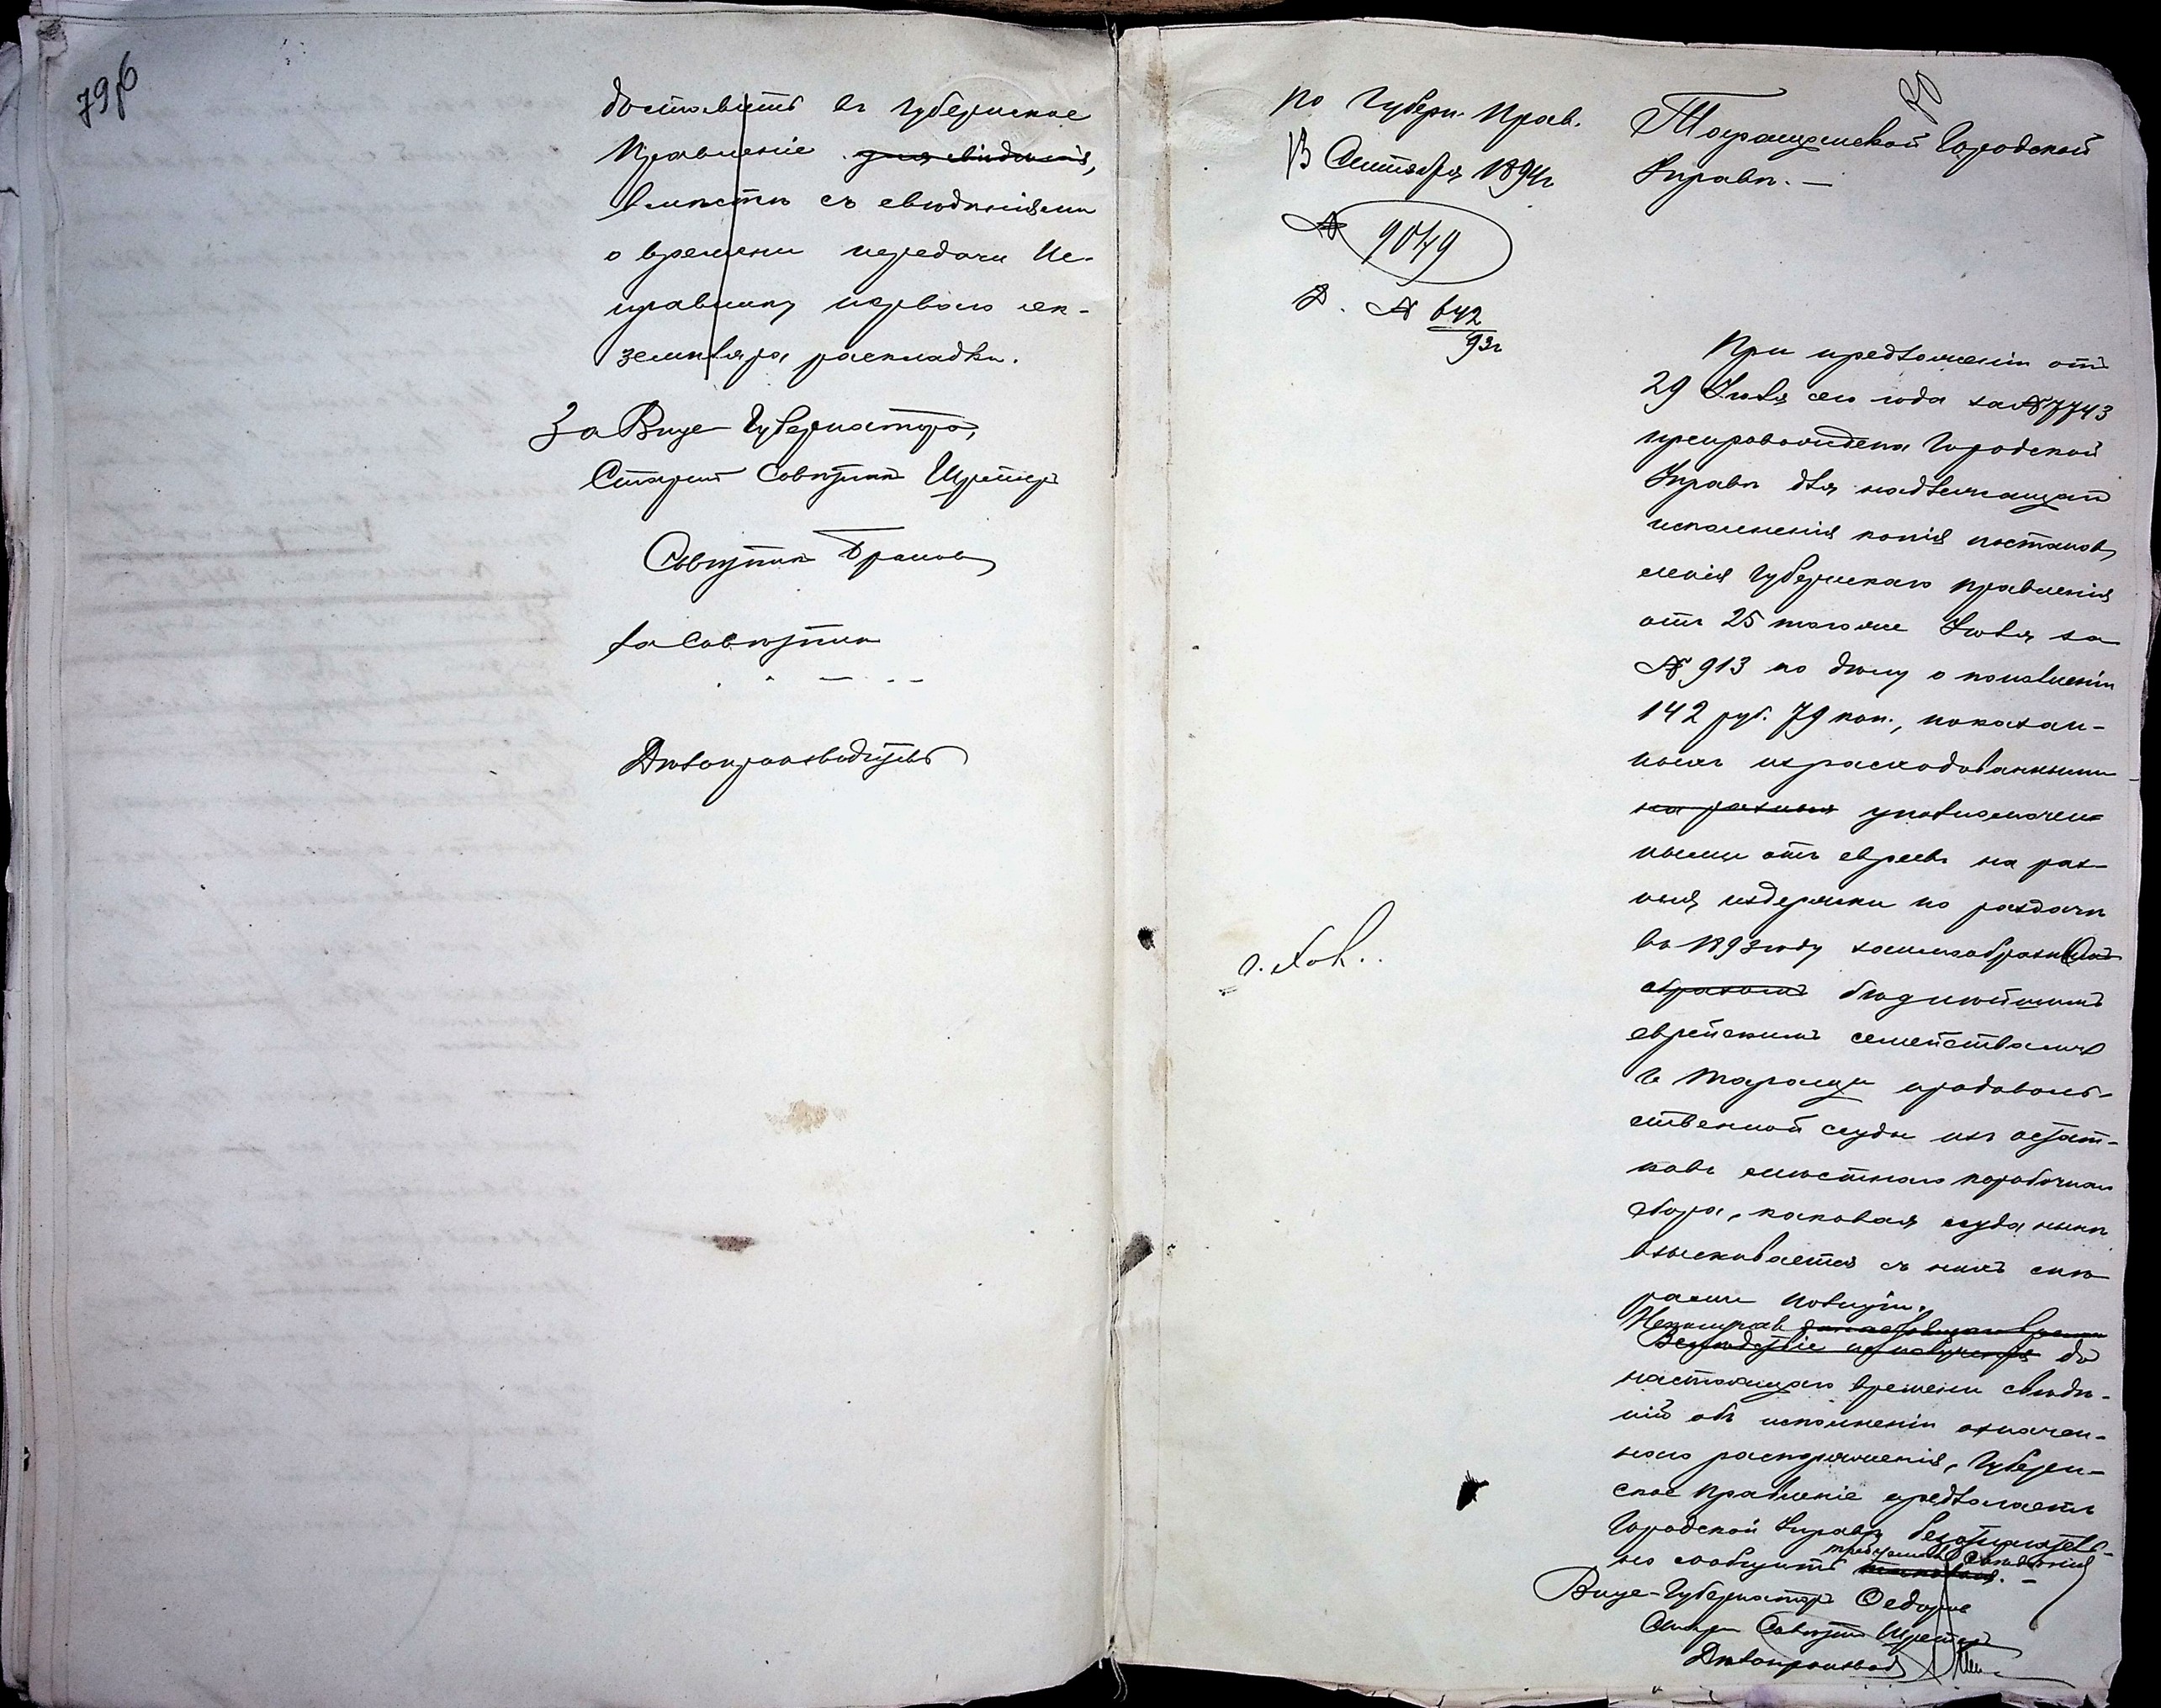 79об
доставить въ Губернское
Правленіе для свѣдѣнія,
вмѣстѣ съ свѣдѣніями
о времени передачи Ис-
правнику перваго эк-
земпляра раскладки.
За Вице-Губернатора,
Старшій Совѣтникъ Шрейеръ
Совѣтникъ
За Совѣтника
Дѣлопроизводитель
80
По Губерн. Прав.
13 Сентября 1894 г
№ 9049
Д. № 642/93 г
Таращанской Городской
Управѣ. —
При предложеніи отъ
29 Іюля сего года за № 7743
препровождена Городской
Управѣ для надлежащаго
исполненія копія постанов
ленія Губернскаго Правленія
отъ 25 того же Іюля за
№ 913 по дѣлу о пополненіи
142 руб. 79 коп., показан-
ныхъ израсходованными
на разные уполномочен
ными отъ евреевъ на раз-
ныя издержки по раздачѣ
въ 1893 году заимообразно
образомъ бѣднѣйшимъ
еврейскимъ семействамъ
г. Таращи продоволь-
ственной ссуды изъ остат-
ковъ мѣстнаго коробочнаго
сбора, каковая ссуда нынѣ
взыскивается съ нихъ мѣ
рами полиціи.
Не имѣя
Вслѣдствіе неполученія до
настоящаго времени свѣдѣ-
ній объ исполненіи означен-
наго распоряженія, Губерн-
ское Правленіе предлагаетъ
Городской Управѣ безотлагатель-
но сообщить требуемыя свѣдѣнія
таковыя. —
Вице-Губернаторъ Федоровъ
Старш. Совѣтникъ Шрейеръ
Дѣлопроизвод